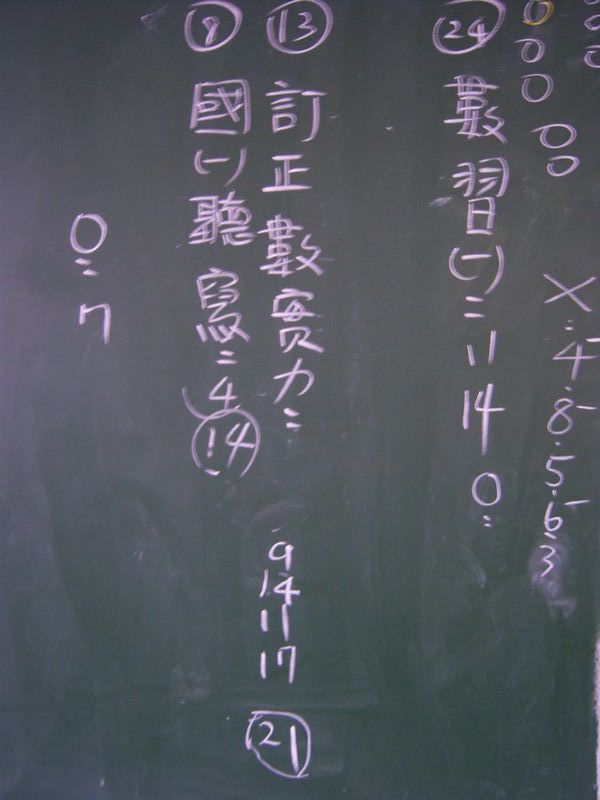 ×:4.8.5.6.3
㉔ 數習(一):11 14 0:
⑬ 訂正數實力:
9
14
11
17
㉑
⑧ 國(一)聽寫:4 ⑭
0:7